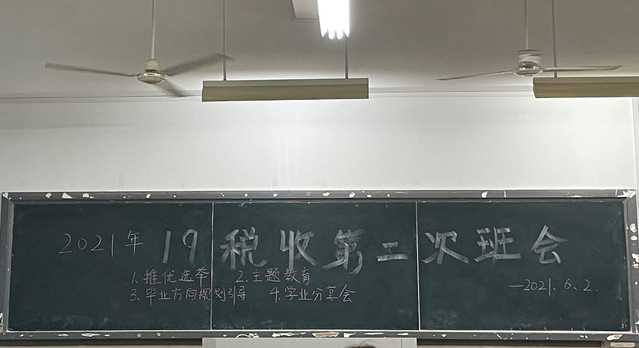 2021年 19税收第二次班会
1.推优选举 2.主题教育
3.毕业方向规划引导 4.学业分享会
—2021.6.2.